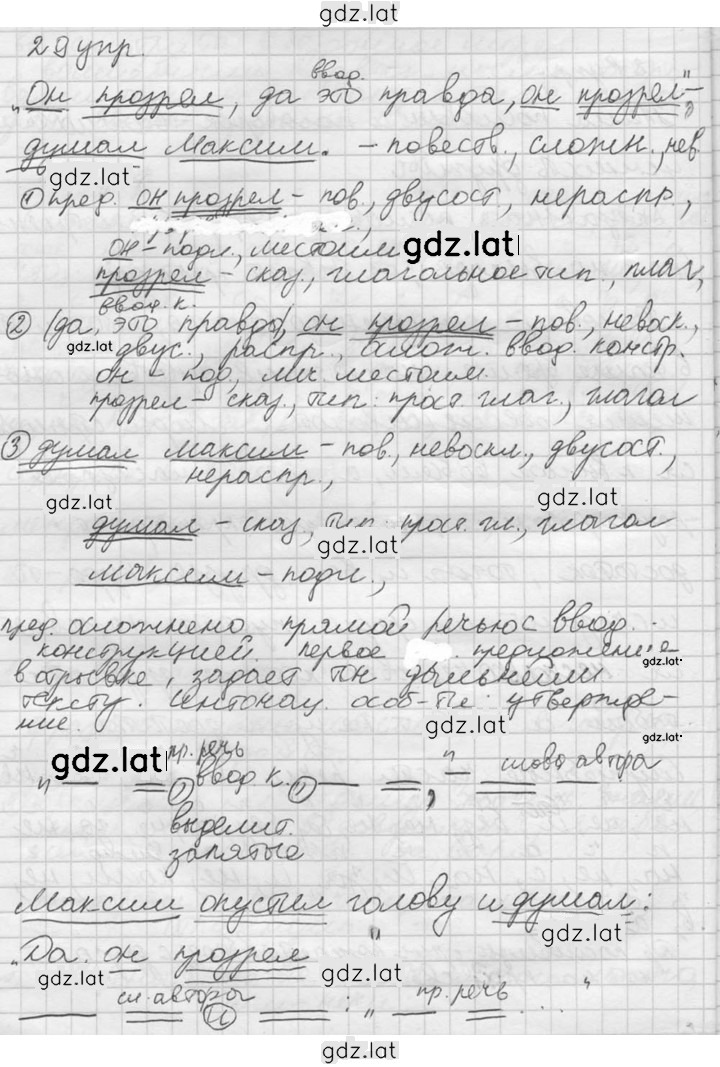 gdz.lat
29 упр.
ввод.
„Он прозрел, да это правда, он прозрел“,-
думал Максим. - повеств., сложн., нев.
gdz.lat
① пред. он прозрел - пов., двусост, нераспр.,
он - подл., местоим
gdz.lat
прозрел - сказ., глагольное тип., глаг,
ввод. к.
② (да, это правда), он прозрел - пов., невоск.,
gdz.lat
двус., распр., ослож. ввод. констр.
он - под, лич. местоим.
прозрел - сказ., тип: прост глаг., глагол
③ думал Максим - пов., невоскл., двусост.,
нераспр.,
gdz.lat
gdz.lat
думал - сказ, тип: прост. гл., глагол
gdz.lat
Максим - подл.,
пред. осложнено прямой речью с ввод.
конструкцией. первое предложение
gdz.lat
в отрывке, задает тон дальнейш
тексту. Интонац. особ-ть: утвержде-
ние.
gdz.lat
gdz.lat
пр. речь
„ ввод. к. , “ - слова автора
выделит.
запятые
Максим опустил голову и думал:
gdz.lat
„Да. он прозрел“
gdz.lat
gdz.lat
сл. авторы
и : „ пр. речь ... “
gdz.lat
gdz.lat